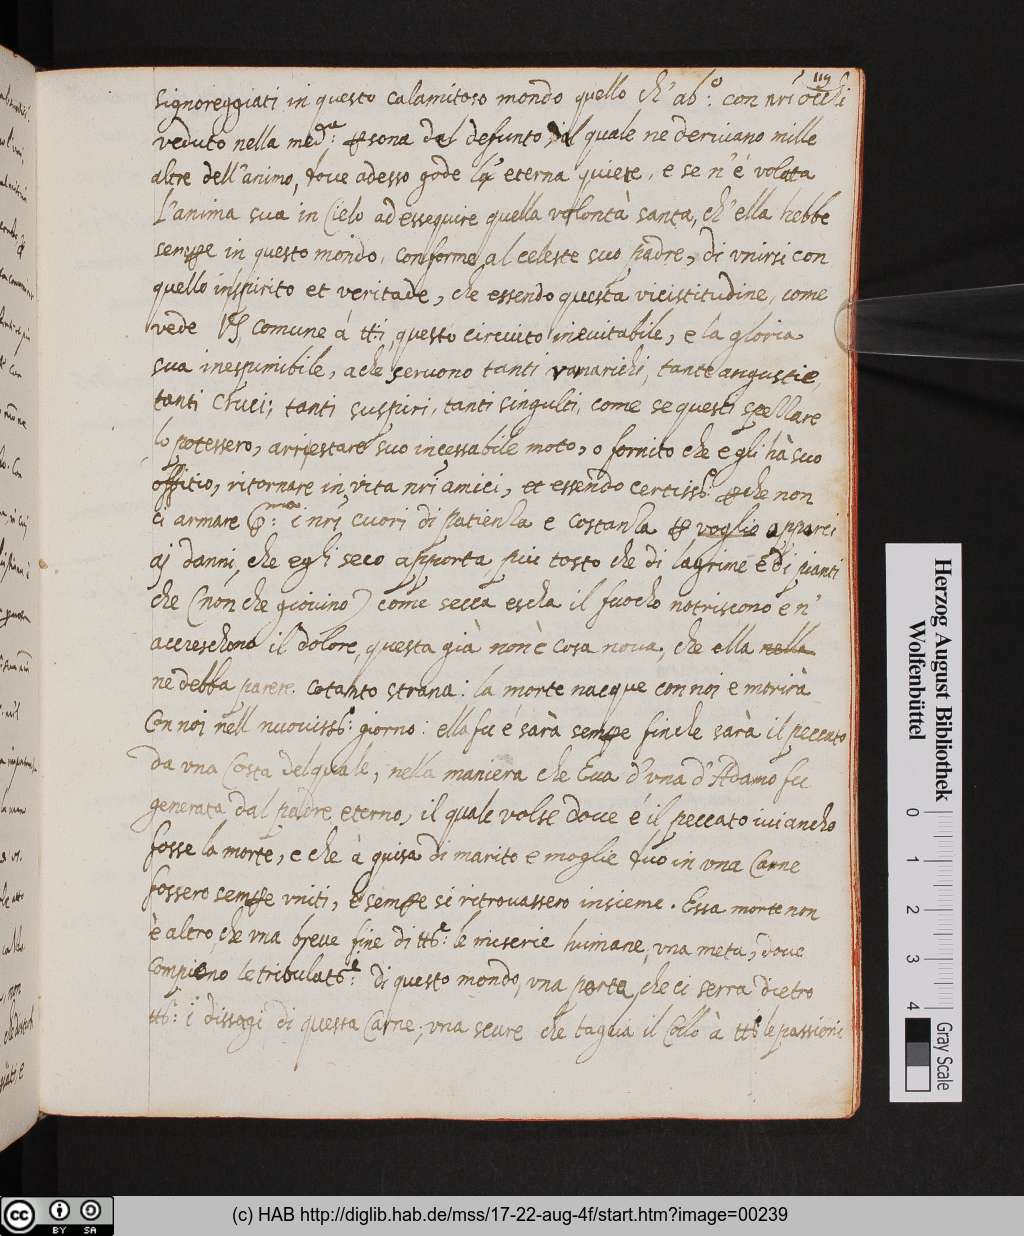 119
signoreggiati in questo calamitoso mondo quello ch' ab.o con nri occhi
veduto nella med.a psona del defunto, dal quale ne derivano mille
altre dell'animo, dove adesso gode la eterna quiete, e se n'é volata
L'anima sua in Cielo ad essequire quella volontà santa, ch'ella hebbe
sempe in questo mondo, conforme al celeste suo padre, di vnirsi con
quello in spirito et veritade, che essendo questa vicistitudine, come
vede VS, comune á tti, questo circuito ineuitabile, e la gloria
sua inesprimibile, a che seruono tanti ramarichi, tante angustie,
tanti Cruci, tanti suspiri, tanti singulti, come se questi
lo potessero, arrestare suo incessabile moto, o fornito che egli hà suo
offitio, ritornare in vita nri amici, et essendo certiss.o pche non
ci armare i nri cuori di patienza e costanza p voglio
ai danni, che egli seco apporta piu tosto che di lagrime e di pianti
che (non che giouino) come secca escha il fuocho notriscono e n'
accreschono il dolore, questa già non è cosa noua, che ella nella
ne debba parere cotanto strana: la morte nacque con noi e morirà
Con noi nell nuouiss.o giorno: ella fu é sarà sempe finche sarà il peccato
da vna Costa del quale, nella maniera che Eua d'vna d'Adamo fu
generata dal padre eterno, il quale volse doue é il peccato iui ancho
fosse la morte, e che à guisa di marito e moglie duo in vna Carne
fossero sempe vniti, e sempe si ritrouassero insieme. Essa morte non
è altro, che vna breue fine di tte le miserie humane, vna meta, doue
Compieno le tribulat.e di questo mondo, vna porta, che ci serra dietro
tti i dissagi di questa Carne, vna scure che taglia il Collo à tte le passioni
Herzog August Bibliothek
Wolfenbüttel
0 1 2 3 4
Gray Scale
cc BY SA
(c) HAB http://diglib.hab.de/mss/17-22-aug-4f/start.htm?image=00239